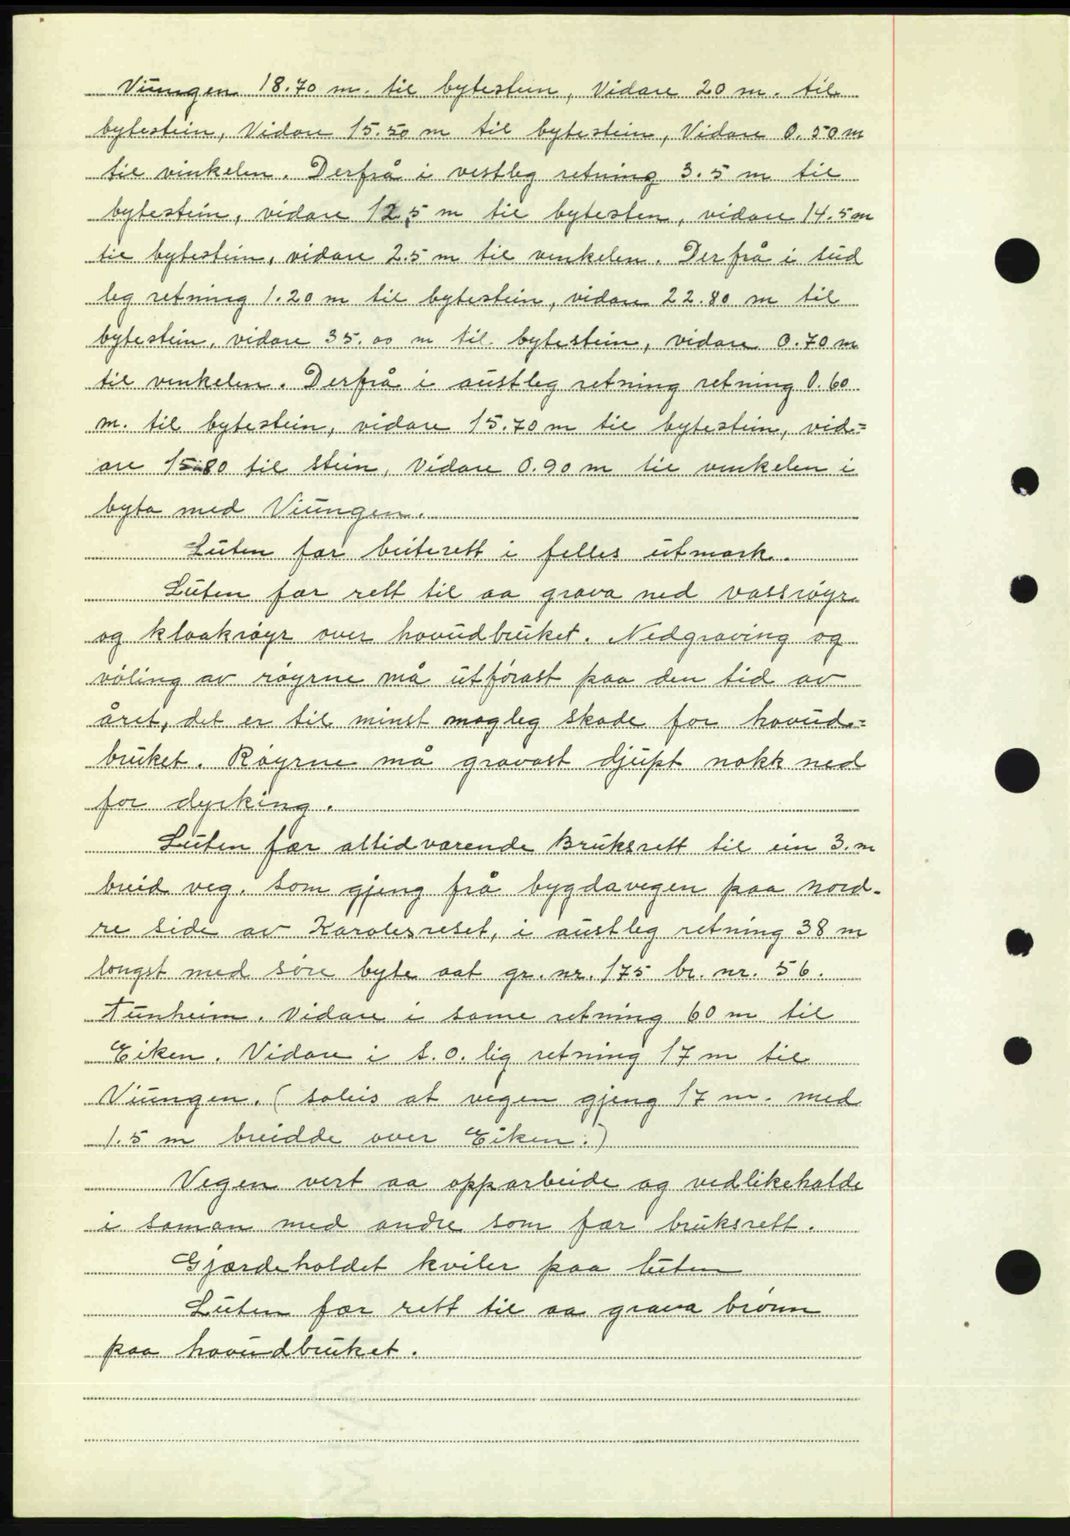 Viungen 18.70 m. til bytestein, Vidare 20 m. til
bytestein, Vidare 15.50 m til bytestein, Vidare 0.50 m
til vinkelen. Derfrå i vestleg retning 3.5 m til
bytestein, vidare 12,5 m til bytesten, vidare 14.5 m
til bytestein, vidare 2.5 m til vinkelen. Derfrå i süd
leg retning 1.20 m til bytestein, vidare 22.80 m til
bytestein, vidare 35.00 m til bytestein, vidare 0.70 m
til vinkelen. Derfrå i austleg retning retning 0.60
m. til bytestein, vidare 15.70 m til bytestein, vid=
are 15.80 til stein, Vidare 0.90 m til vinkelen i
byta med Viungen.
Luten fær beiterett i felles utmark.
Luten fær rett til aa grava ned vassrøyr
og kloakrøyr over hovudbruket. Nedgraving og
vøling av røyrne må utførast paa den tid av
året, det er til minst mogleg skade for hovud=
bruket. Røyrne må gravast djupt nokk ned
for dyrking.
Luten fær altidvarende Bruksrett til ein 3. m
breid veg. som gjeng frå bygdavegen paa nord-
re side av Karolesreset, i austleg retning 38 m
langst med søre byte aat gr. nr. 175 br. nr. 56.
Tunheim. Vidare i same retning 60 m til
Eiken. Vidare i S.O. lig retning 17 m til
Viungen. (soleis at vegen gjeng 17 m. med
1.5 m breidde over Eiken.)
Vegen vert aa opparbeide og vedlikehalde
i saman med andre som fær bruksrett.
Gjærdeholdet kviler paa luten
Luten fær rett til aa grava brønn
paa hovudbruket.